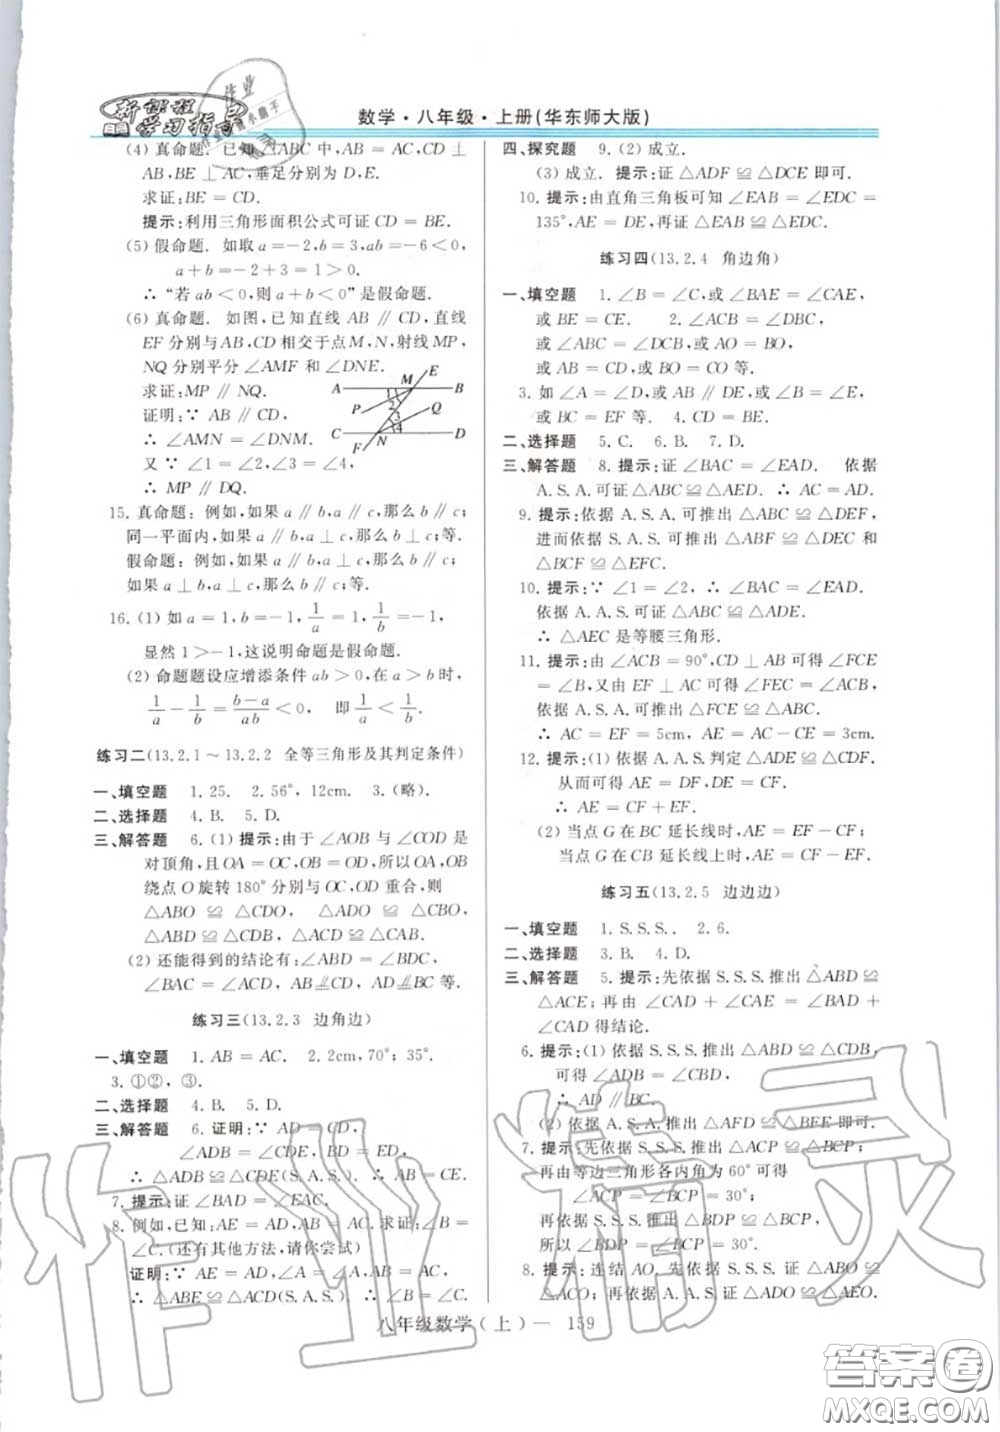 新课程
学习指导
数学·八年级·上册(华东师大版)
(4) 真命题. 已知 △ABC 中, AB = AC, CD ⊥
AB, BE ⊥ AC, 垂足分别为 D, E.
求证: BE = CD.
提示: 利用三角形面积公式可证 CD = BE.
(5) 假命题. 如取 a = -2, b = 3, ab = -6 < 0,
a + b = -2 + 3 = 1 > 0.
∴ “若 ab < 0, 则 a + b < 0” 是假命题.
(6) 真命题. 如图, 已知直线 AB ∥ CD, 直线
EF 分别与 AB, CD 相交于点 M, N, 射线 MP,
NQ 分别平分 ∠AMF 和 ∠DNE.
求证: MP ∥ NQ.
证明: ∵ AB ∥ CD,
∴ ∠AMN = ∠DNM.
又 ∵ ∠1 = ∠2, ∠3 = ∠4,
∴ MP ∥ DQ.
A M E B
1 2
P Q
3 4
C N D
F
15. 真命题: 例如, 如果 a ∥ b, a ∥ c, 那么 b ∥ c;
同一平面内, 如果 a ⊥ b, a ⊥ c, 那么 b ∥ c; 等.
假命题: 例如, 如果 a ∥ b, a ⊥ c, 那么 b ∥ c;
如果 a ⊥ b, a ⊥ c, 那么 b ⊥ c; 等.
16. (1) 如 a = 1, b = -1, 1/a = 1, 1/b = -1,
显然 1 > -1, 这说明命题是假命题.
(2) 命题题设应增添条件 ab > 0, 在 a > b 时,
1/a - 1/b = (b-a)/ab < 0, 即 1/a < 1/b.
练习二(13.2.1 ~ 13.2.2 全等三角形及其判定条件)
一、填空题 1. 25. 2. 56°, 12cm. 3. (略).
二、选择题 4. B. 5. D.
三、解答题 6. (1) 提示: 由于 ∠AOB 与 ∠COD 是
对顶角, 且 OA = OC, OB = OD, 所以 OA, OB
绕点 O 旋转 180° 分别与 OC, OD 重合, 则
△ABO ≌ △CDO, △ADO ≌ △CBO,
△ABD ≌ △CDB, △ACD ≌ △CAB.
(2) 还能得到的结论有: ∠ABD = ∠BDC,
∠BAC = ∠ACD, AB ∥ CD, AD ∥ BC 等.
练习三(13.2.3 边角边)
一、填空题 1. AB = AC. 2. 2cm, 70°; 35°.
3. ①②, ③.
二、选择题 4. B. 5. D.
三、解答题 6. 证明: ∵ AD = CD,
∠ADB = ∠CDE, BD = DE,
∴ △ADB ≌ △CDE(S. A. S.) ∴ AB = CE.
7. 提示: 证 ∠BAD = ∠EAC.
8. 例如, 已知: AE = AD, AB = AC. 求证: ∠B =
∠C. (还有其他方法, 请你尝试)
证明: ∵ AE = AD, ∠A = ∠A, AB = AC,
∴ △ABE ≌ △ACD(S. A. S.) ∴ ∠B = ∠C.
四、探究题 9. (2) 成立.
(3) 成立. 提示: 证 △ADF ≌ △DCE 即可.
10. 提示: 由直角三角板可知 ∠EAB = ∠EDC =
135°, AE = DE, 再证 △EAB ≌ △EDC.
练习四(13.2.4 角边角)
一、填空题 1. ∠B = ∠C, 或 ∠BAE = ∠CAE,
或 BE = CE. 2. ∠ACB = ∠DBC,
或 ∠ABC = ∠DCB, 或 AO = BO,
或 ∠BAC = ∠BDC, 或 BO = CO 等.
3. 如 ∠A = ∠D, 或 AB ∥ DE, 或 ∠B = ∠E,
或 BC = EF 等. 4. CD = BE.
二、选择题 5. C. 6. B. 7. D.
三、解答题 8. 提示: 证 ∠BAC = ∠EAD. 依据
A. S. A. 可证 △ABC ≌ △AED. ∴ AC = AD.
9. 提示: 依据 A. S. A. 可推出 △ABC ≌ △DEF,
进而依据 S. A. S. 可推出 △ABF ≌ △DEC 和
△BCF ≌ △EFC.
10. 提示: ∵ ∠1 = ∠2, ∴ ∠BAC = ∠EAD.
依据 A. A. S. 可证 △ABC ≌ △ADE.
∴ △AEC 是等腰三角形.
11. 提示: 由 ∠ACB = 90°, CD ⊥ AB 可得 ∠FCE
= ∠B, 又由 EF ⊥ AC 可得 ∠FEC = ∠ACB,
依据 A. S. A. 可推出 △FCE ≌ △ABC.
∴ AC = EF = 5cm, AE = AC - CE = 3cm.
12. 提示: (1) 依据 A. A. S. 判定 △ADE ≌ △DCF.
从而可得 AE = DF, DE = CF.
∴ AE = CF + EF.
(2) 当点 G 在 BC 延长线时, AE = EF - CF;
当点 G 在 CB 延长线上时, AE = CF - EF.
练习五(13.2.5 边边边)
一、填空题 1. S. S. S. 2. 6.
二、选择题 3. B. 4. D.
三、解答题 5. 提示: 先依据 S. S. S. 推出 △ABD ≌
△ACE; 再由 ∠CAD + ∠CAE = ∠BAD +
∠CAD 得结论.
6. 提示: (1) 依据 S. S. S. 推出 △ABD ≌ △CDB,
可得 ∠ADB = ∠CBD,
∴ AD ∥ BC.
(2) 依据 A. S. A. 推出 △AFD ≌ △BEE 即可.
7. 提示: 先依据 S. S. S. 推出 △ACP ≌ △BCP;
再由等边三角形各内角为 60° 可得
∠ACP = ∠BCP = 30°;
再依据 S. S. S. 推出 △BDP ≌ △BCP,
所以 ∠BDP = ∠BCP = 30°.
8. 提示: 连结 AO, 先依据 S. S. S. 证 △ABO ≌
△ACO, 再依据 A. A. S. 证 △ADO ≌ △AEO.
八年级数学(上)— 159
作业精灵
答案卷
MXQE.COM